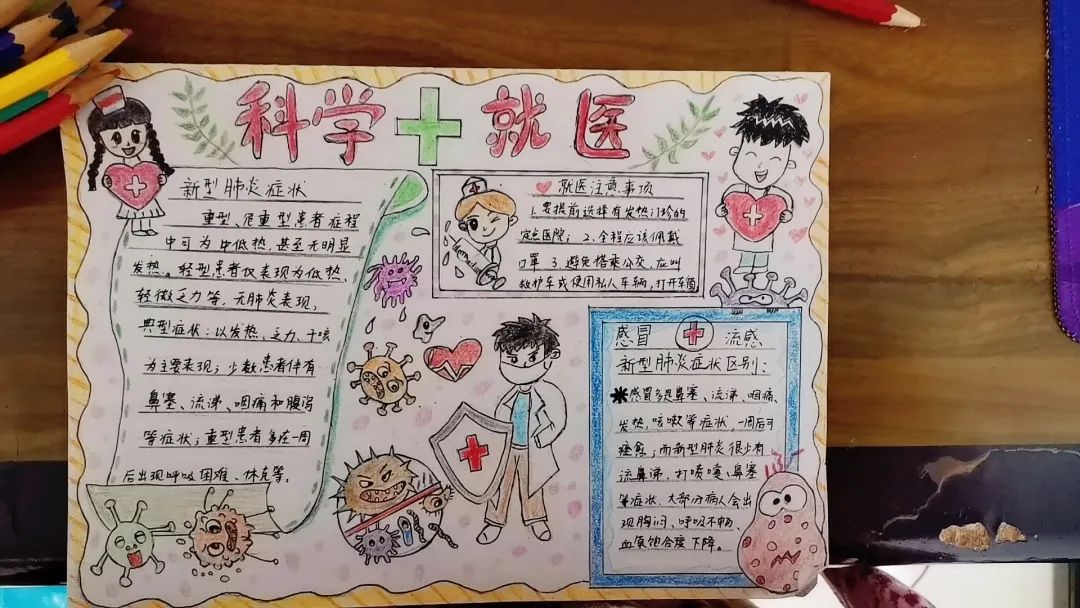 科学十就医
新型肺炎症状
重型、危重型患者症程
中可为中低热,甚至无明显
发热。轻型患者仅表现为低热、
轻微乏力等,无肺炎表现,
典型症状:以发热、乏力、干咳
为主要表现;少数患者伴有
鼻塞、流涕、咽痛和腹泻
等症状;重型患者多在一周
后出现呼吸困难、休克等。
就医注意事项
1.要提前选择有发热门诊的
定点医院;2.全程应该佩戴
口罩 3.避免搭乘公交,应叫
救护车或使用私人车辆,打开车窗
感冒 流感
新型肺炎症状区别:
感冒多是鼻塞、流涕、咽痛、
发热,咳嗽等症状,一周后可
痊愈;而新型肺炎很少有
流鼻涕、打喷嚏、鼻塞
等症状,大部分病人会出
现胸闷、呼吸不畅
血氧饱合度下降。